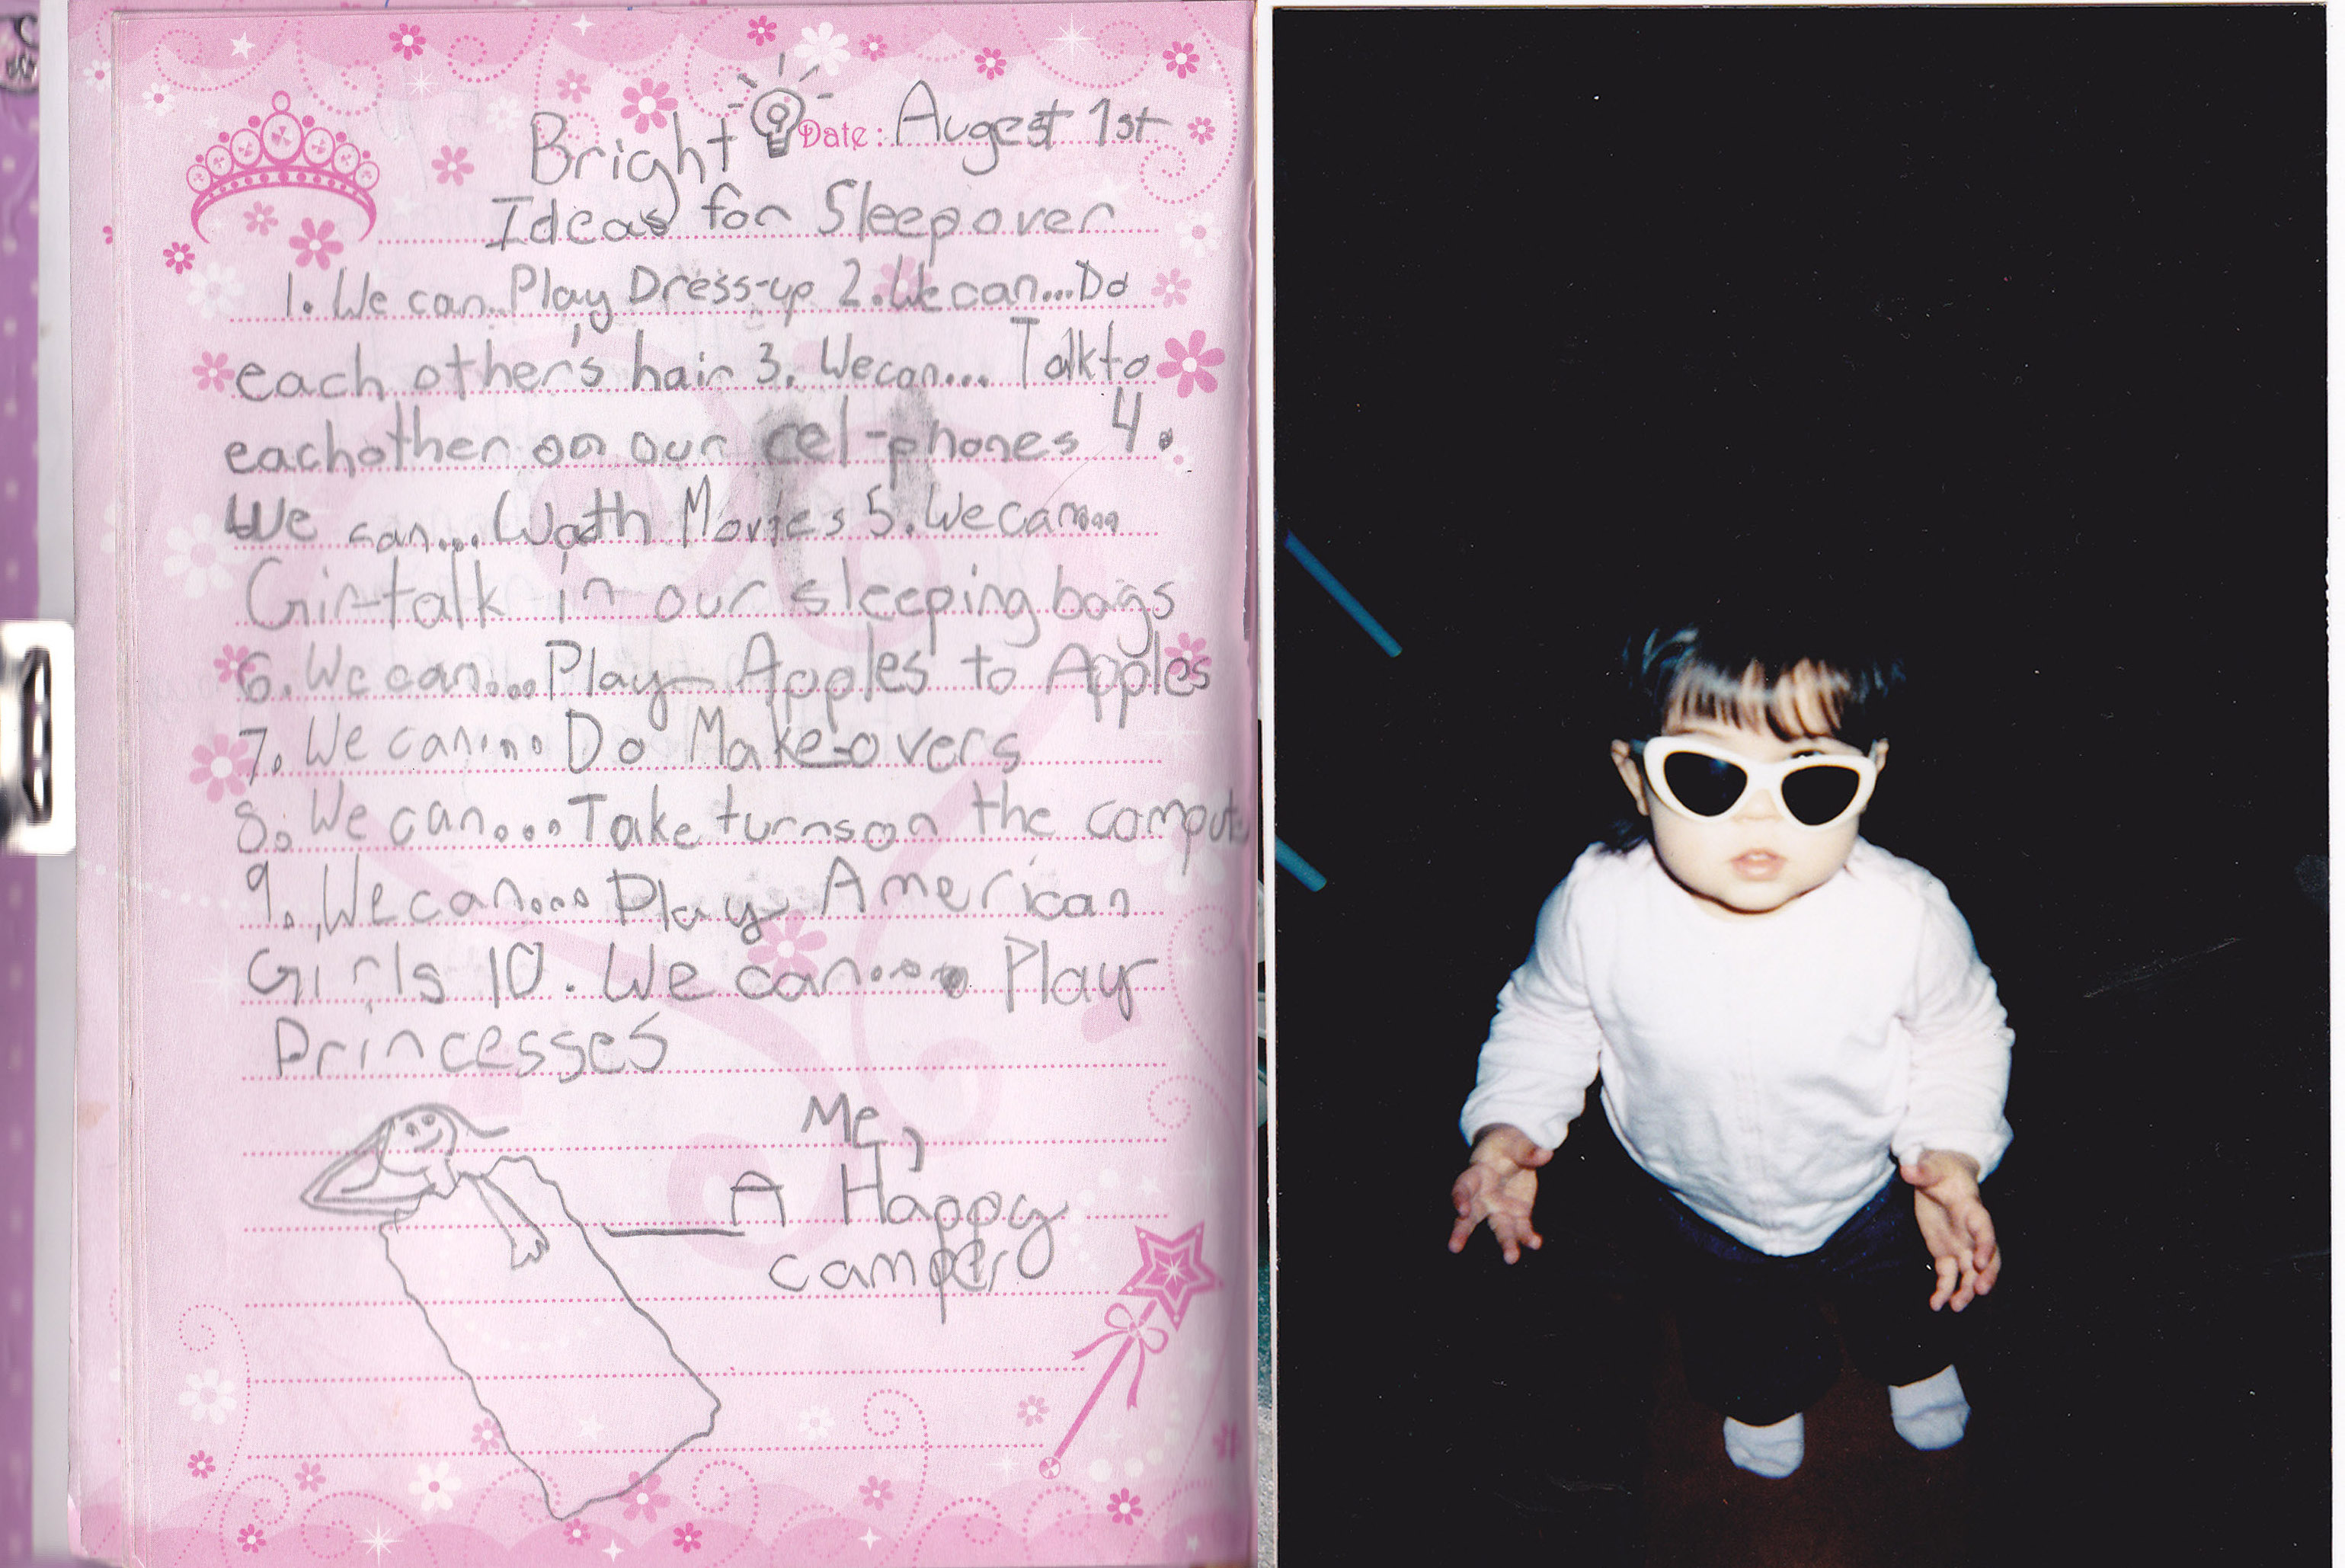 Bright Date: Augest 1st
Ideas for Sleepover
1. We can... Play Dress-up 2. We can... Do
each other's hair 3. We can... Talk to
eachother on our cel-phones 4.
We can... Wath Movies 5. We can...
Girl-talk in our sleeping bags
6. We can... Play Apples to Apples
7. We can... Do Make-overs
8. We can... Take turns on the compute
9. We can... Play American
Girls 10. We can... Play
Princesses
Me,
A Happy
camper